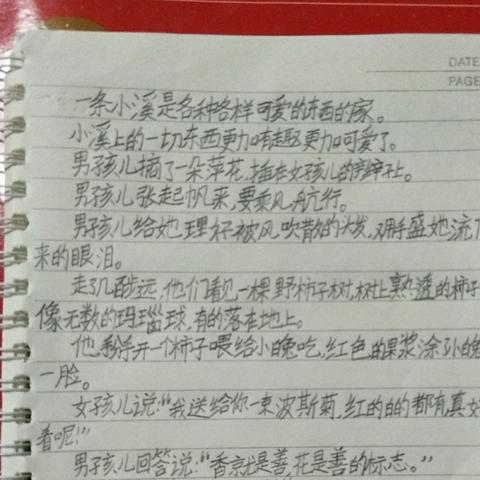 DATE
PAGE
一条小溪是各种各样可爱的东西的家。
小溪上的一切东西更加有趣更加可爱了。
男孩儿摘了一朵萍花,插在女孩儿的辫子上。
男孩儿张起帆来,要乘风航行。
男孩儿给她理好被风吹散的头发,用手盛她流下
来的眼泪。
走了几百步远,他们看见一棵野柿子树,树上熟透的柿子
像无数的玛瑙球,有的落在地上。
他掰开一个柿子喂给小兔吃,红色的果浆涂了小兔
一脸。
女孩儿说:“我送给你一束波斯菊,红的白的都有,真好
看呢!”
男孩儿回答说:“香就是善,花是善的标志。”